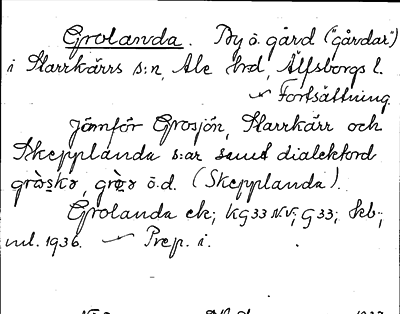 Grolanda. By o. gård ("gårdar")
i Starrkärrs s:n, Ale hrd, Älfsborgs l.
✓ Fortsättning.
Jämför Grosjön, Starrkärr och
Skepplanda s:ar samt dialektord
o.d. (Skepplanda).
Grolanda ek; KG33 NV; G33; Skb.;
1936. ✓ Prep. i.